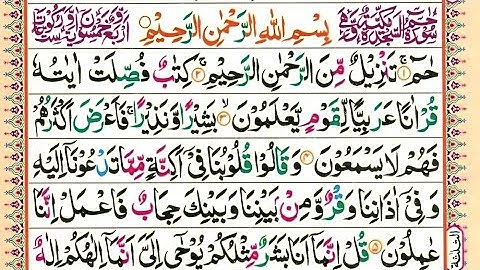 سُوْرَةُ حٰمٓ السَّجْدَةِ مَكِّيَّةٌ بِسْمِ اللّٰهِ الرَّحْمٰنِ الرَّحِيْمِ
حٰمٓ ۚ﴿۱﴾ تَنْزِيْلٌ مِّنَ الرَّحْمٰنِ الرَّحِيْمِ ۚ﴿۲﴾ كِتٰبٌ فُصِّلَتْ اٰيٰتُهٗ
قُرْاٰنًا عَرَبِيًّا لِّقَوْمٍ يَّعْلَمُوْنَ ۙ﴿۳﴾ بَشِيْرًا وَّنَذِيْرًا ۚ فَاَعْرَضَ اَكْثَرُهُمْ
فَهُمْ لَا يَسْمَعُوْنَ ﴿۴﴾ وَقَالُوْا قُلُوْبُنَا فِيْۤ اَكِنَّةٍ مِّمَّا تَدْعُوْنَاۤ اِلَيْهِ
وَفِيْۤ اٰذَانِنَا وَقْرٌ وَّمِنْۢ بَيْنِنَا وَبَيْنِكَ حِجَابٌ فَاعْمَلْ اِنَّنَا
عٰمِلُوْنَ ﴿۵﴾ قُلْ اِنَّمَاۤ اَنَا بَشَرٌ مِّثْلُكُمْ يُوْحٰۤى اِلَيَّ اَنَّمَاۤ اِلٰهُكُمْ اِلٰهٌ